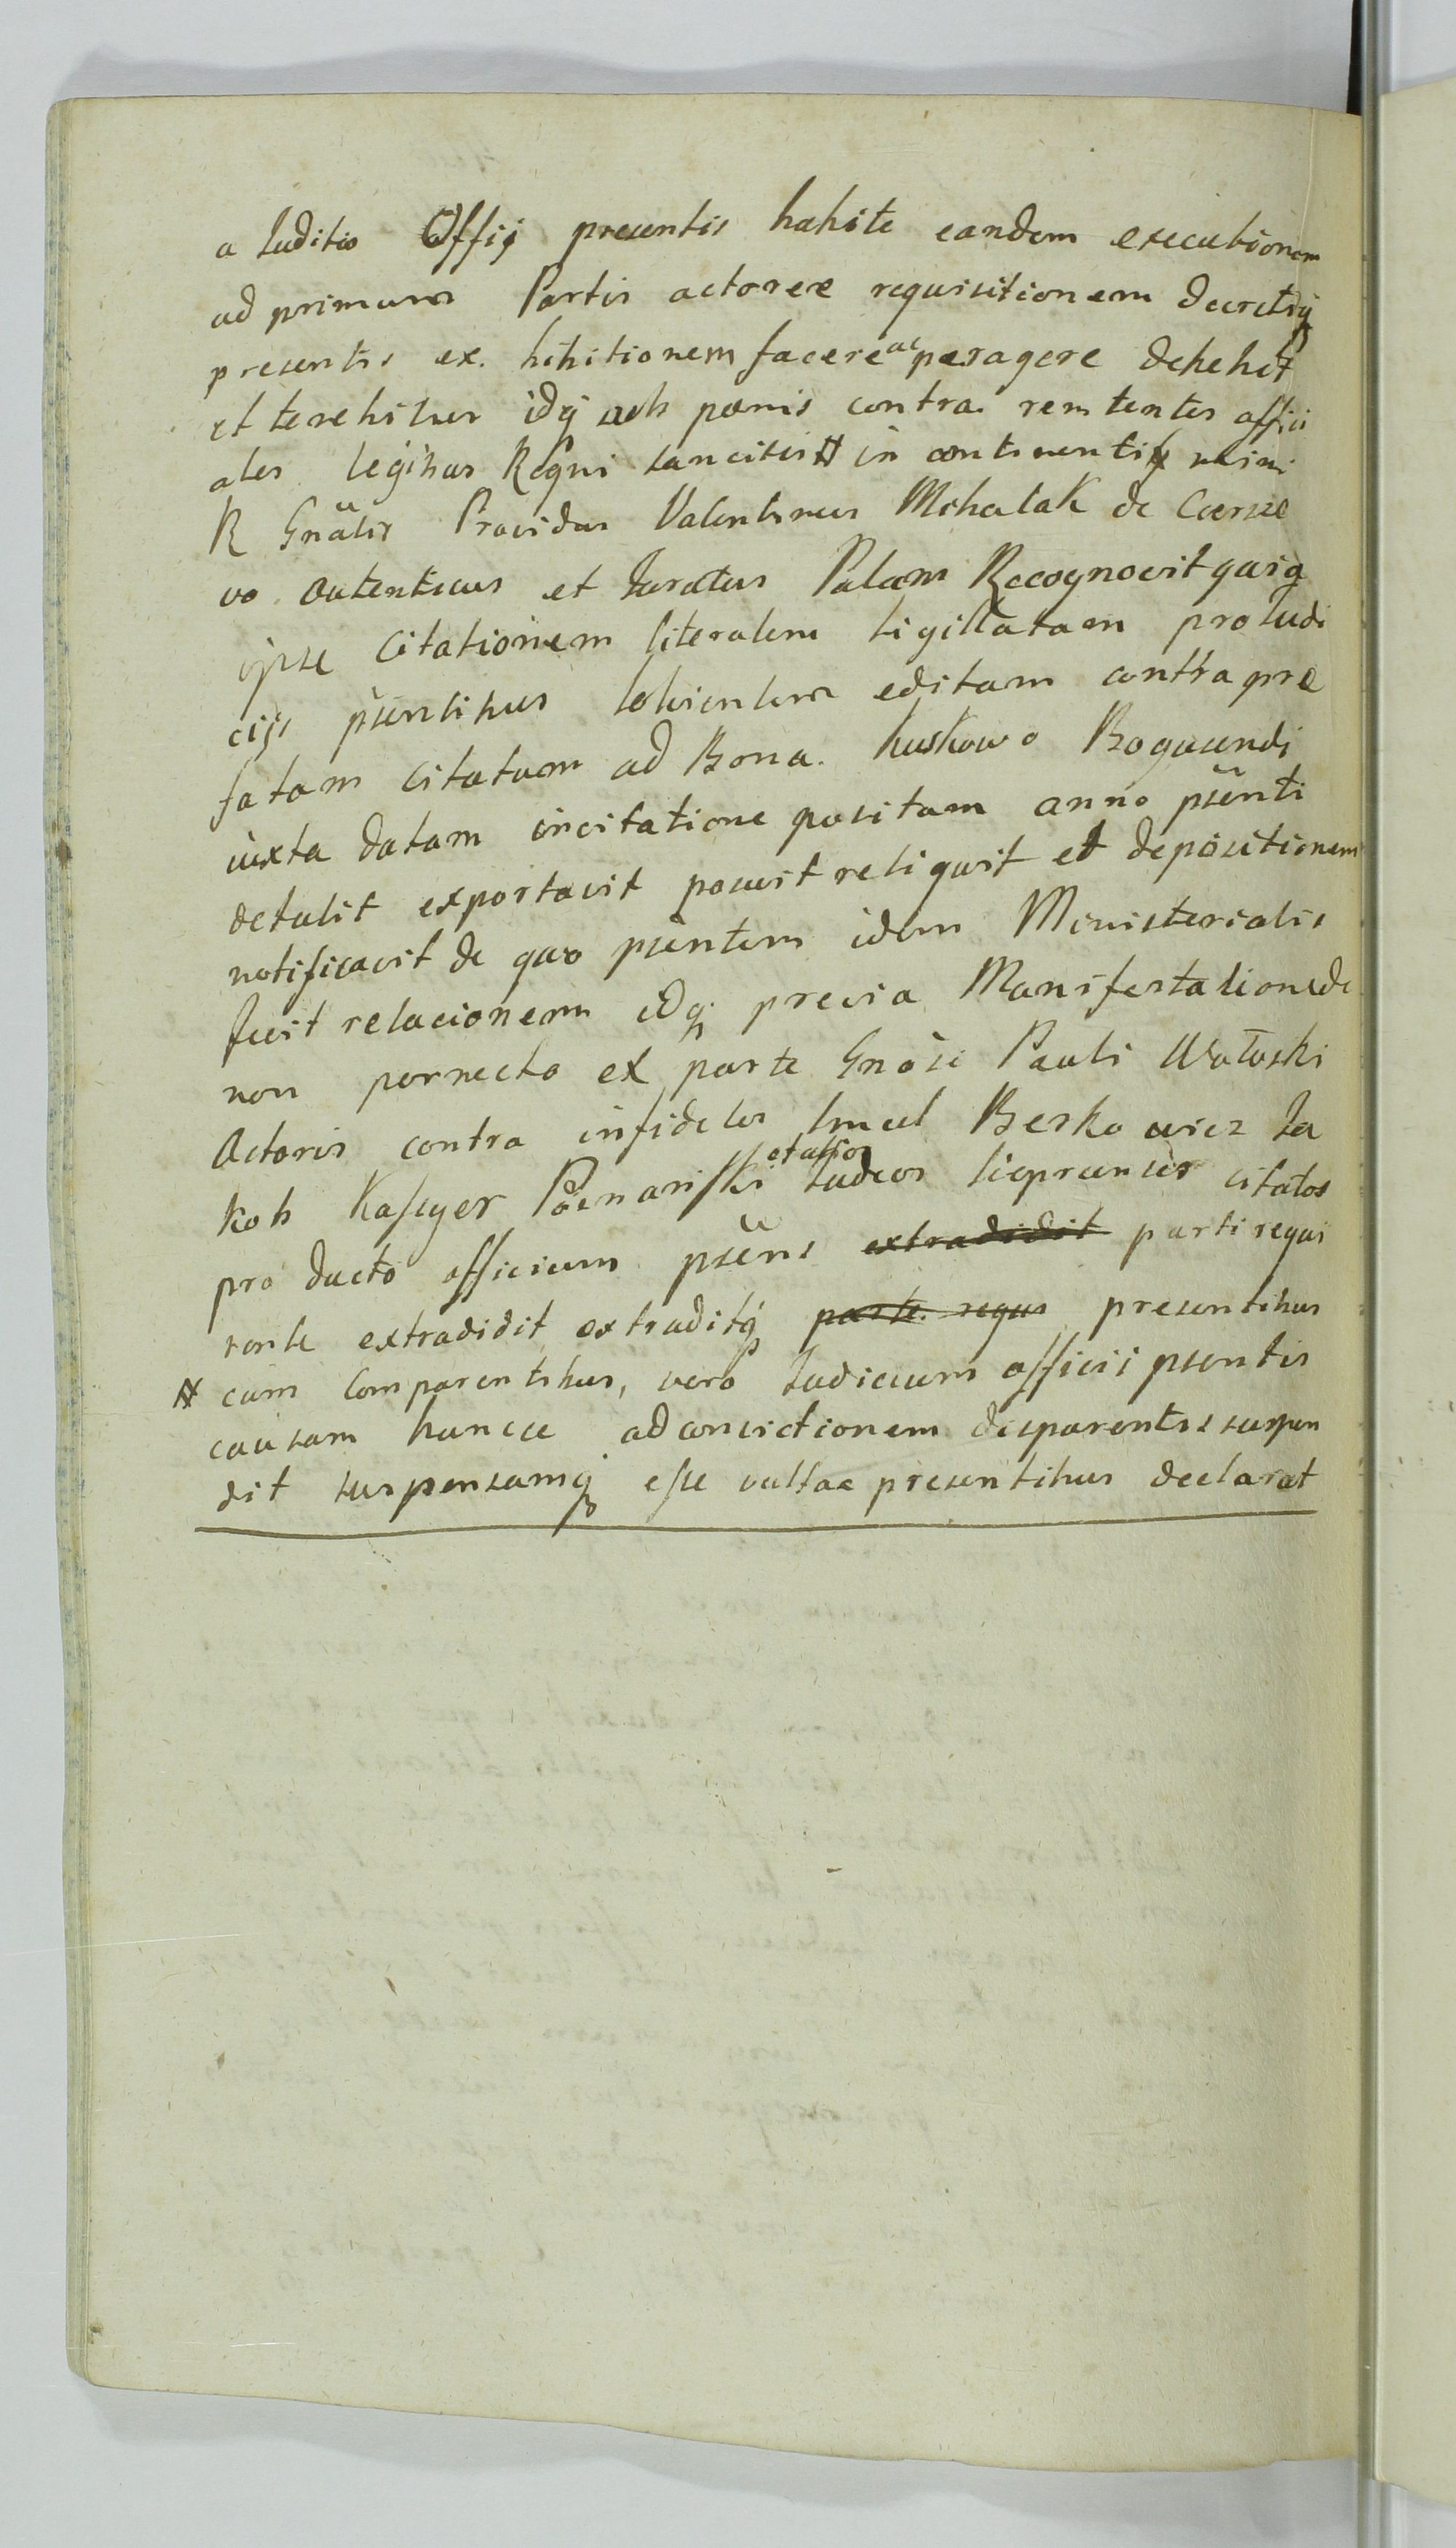 a Iuditio Offij presentis habite eandem executionem
ad primam Partis actoree requisitionem Decretiq
presentis ex. hibitionem facere ac peragere debebit
et tenebitur idq sub pœnis contra remtentes offici
ales legibus Regni sancitis # in continenti
R Gnälis Providus Valentinus Mihalak de Czersze
vo autenticus et Iuratus Palam Recognovit quiq
ipse Citationem literalem sigillatam pro Iudi
cijs psentibus editam contra pre
fatam citatam ad Bona. Kuskowo Bogusendi
iuxta datam incitatione positam anno psenti
detulit exportavit posuit reliquit et depositionem
notificavit de quo psentem idem Ministerialis
fecit relacionem idq previa Manifestatione de
non pernecta ex parte Gnosi Pauli Woloski
Actoris contra infideles Smul Berkowicz Ia
kob Kasyer Poznanski et alios Iudeos citatos
pro ducto officium psens extradidit parti requi
rente extradidit extraditq parte requs presentibus
# cum Comparentibus, vero Iudicium officii psentis
causam huncce ad convictionem disparentis suspen
dit suspensamq esse vultac presentibus declarat